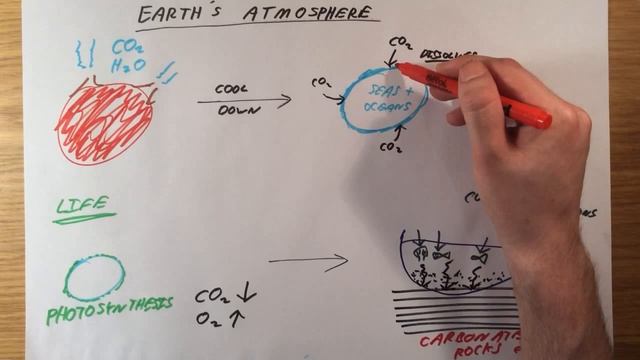 EARTH'S ATMOSPHERE
CO2
H2O
COOL
DOWN
CO2
CO2
SEAS +
OCEANS
CO2
LIFE
PHOTOSYNTHESIS
CO2 ↓
O2 ↑
CARBONATE
ROCKS